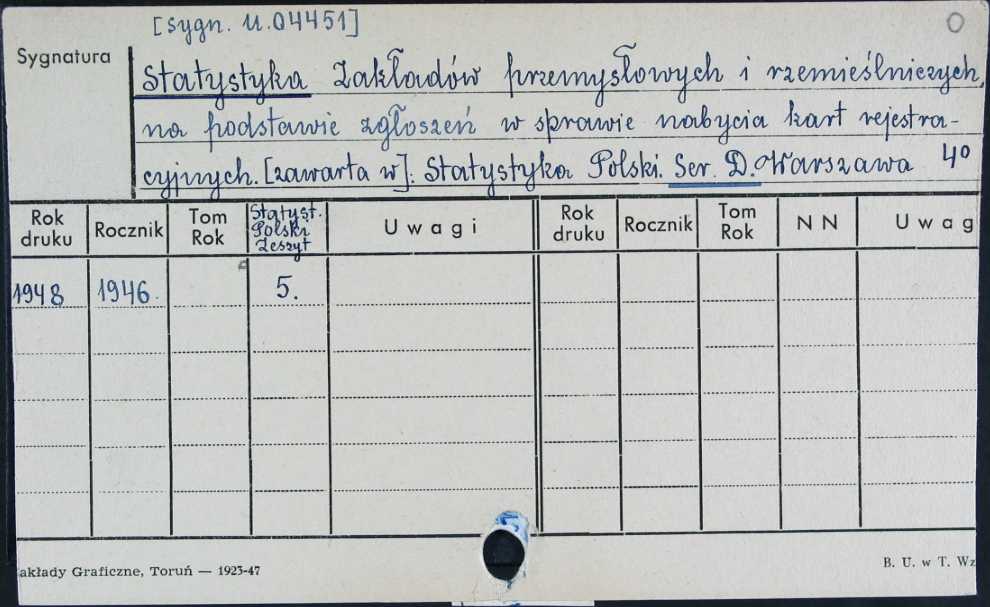 [sygn. U.04451]
O
Sygnatura
Statystyka Zakładów przemysłowych i rzemieślniczych,
na podstawie zgłoszeń w sprawie nabycia kart rejestra-
cyjnych. [zawarta w]: Statystyka Polski. Ser. D. Warszawa 4º
Rok druku Rocznik Tom Rok Statyst. Polski Zeszyt Uwagi Rok druku Rocznik Tom Rok NN Uwag
1948 1946. 5.
akłady Graficzne, Toruń — 1923-47
B. U. w T. Wz